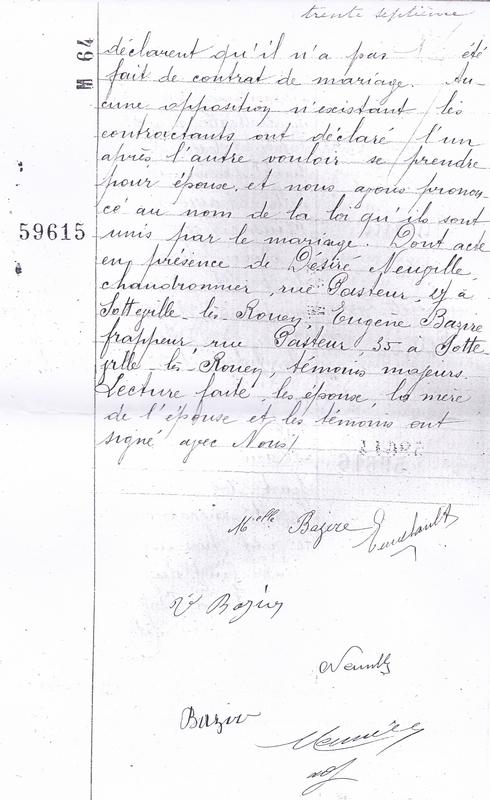 trente septième
M 64
déclarent qu'il n'a pas été
fait de contrat de mariage. Au-
cune opposition n'existant les
contractants ont déclaré l'un
après l'autre vouloir se prendre
pour épouse, et nous avons pronon-
cé au nom de la loi qu'ils sont
59615
unis par le mariage. Dont acte
en présence de Désiré Neuville,
chaudronnier, rue Pasteur, 27 à
Sotteville-lès-Rouen, Eugène Bazire
frappeur rue Pasteur 35 à Sotte
ville-lès-Rouen, témoins majeurs.
Lecture faite, les épouse, la mère
de l'épouse et les témoins ont
signé avec Nous./.
Melle Bazire
Vve Bazire
Neuville
Bazire